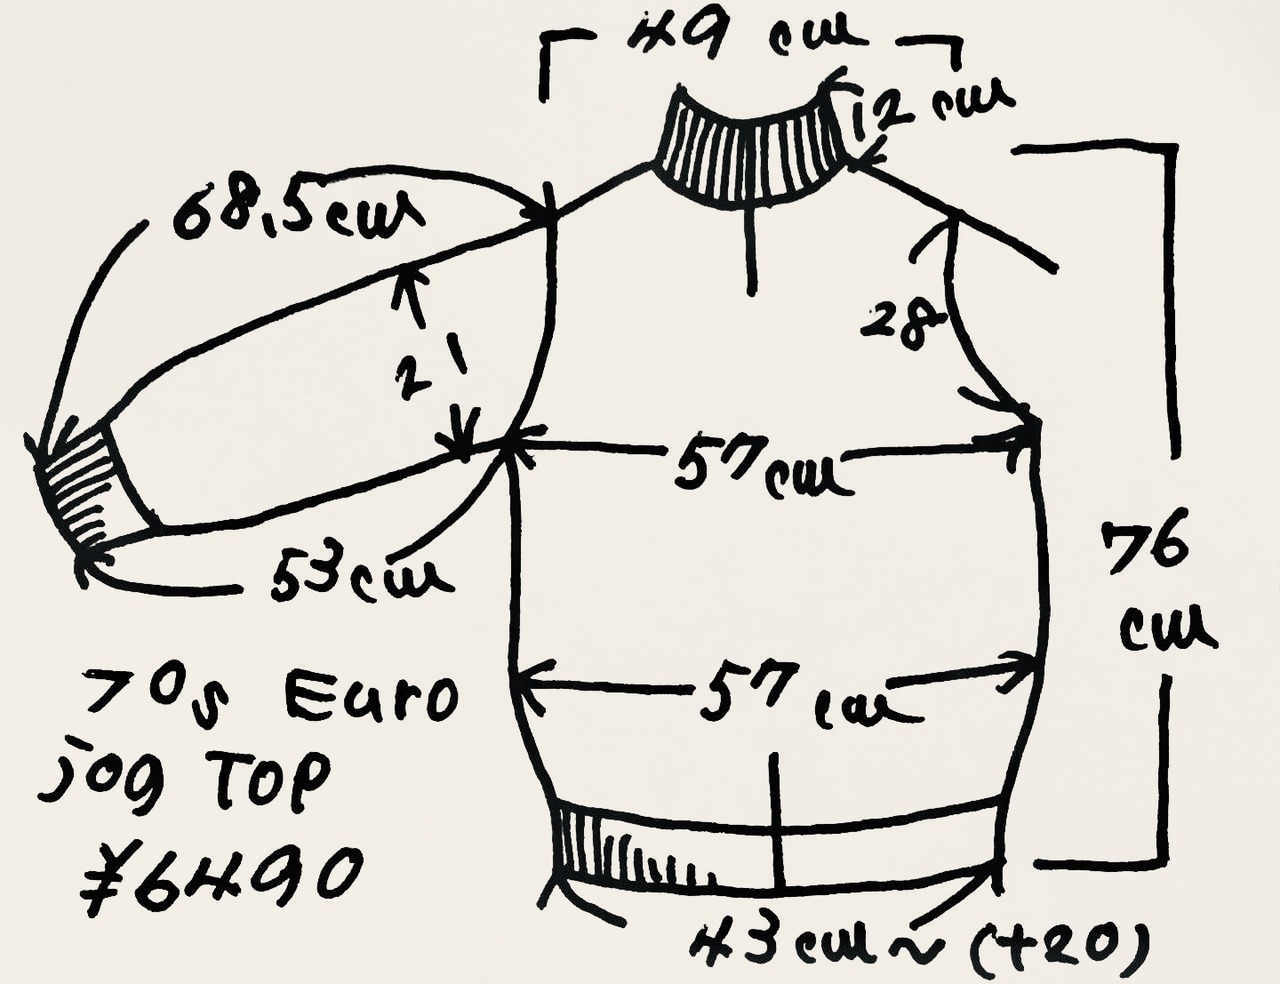 49 cm
12 cm
68.5cm
28
21
57cm
53cm
76
cm
57cm
70s Euro
jog TOP
¥6490
43cm~(+20)